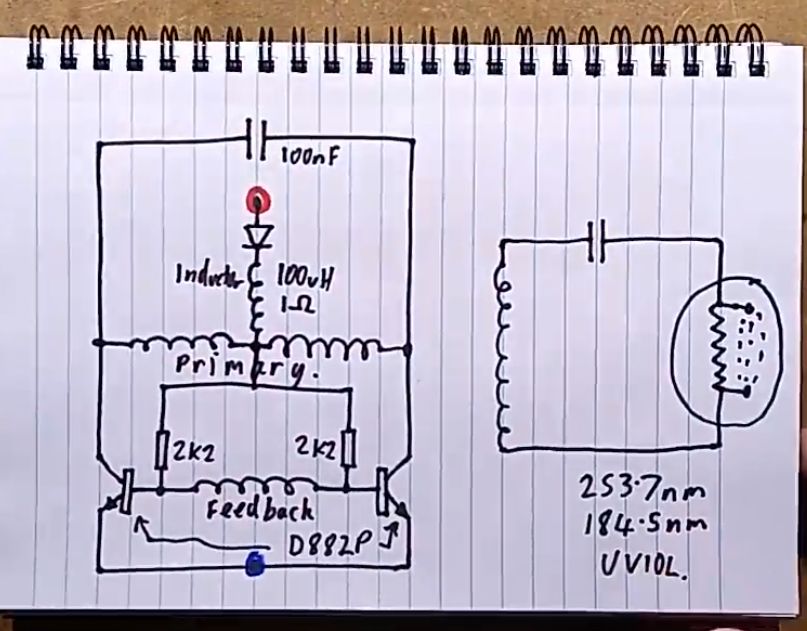 100nF
Inductor 100uH
1Ω
Primary.
2k2 2k2
Feedback
D882P
253.7nm
184.5nm
UVIOL.